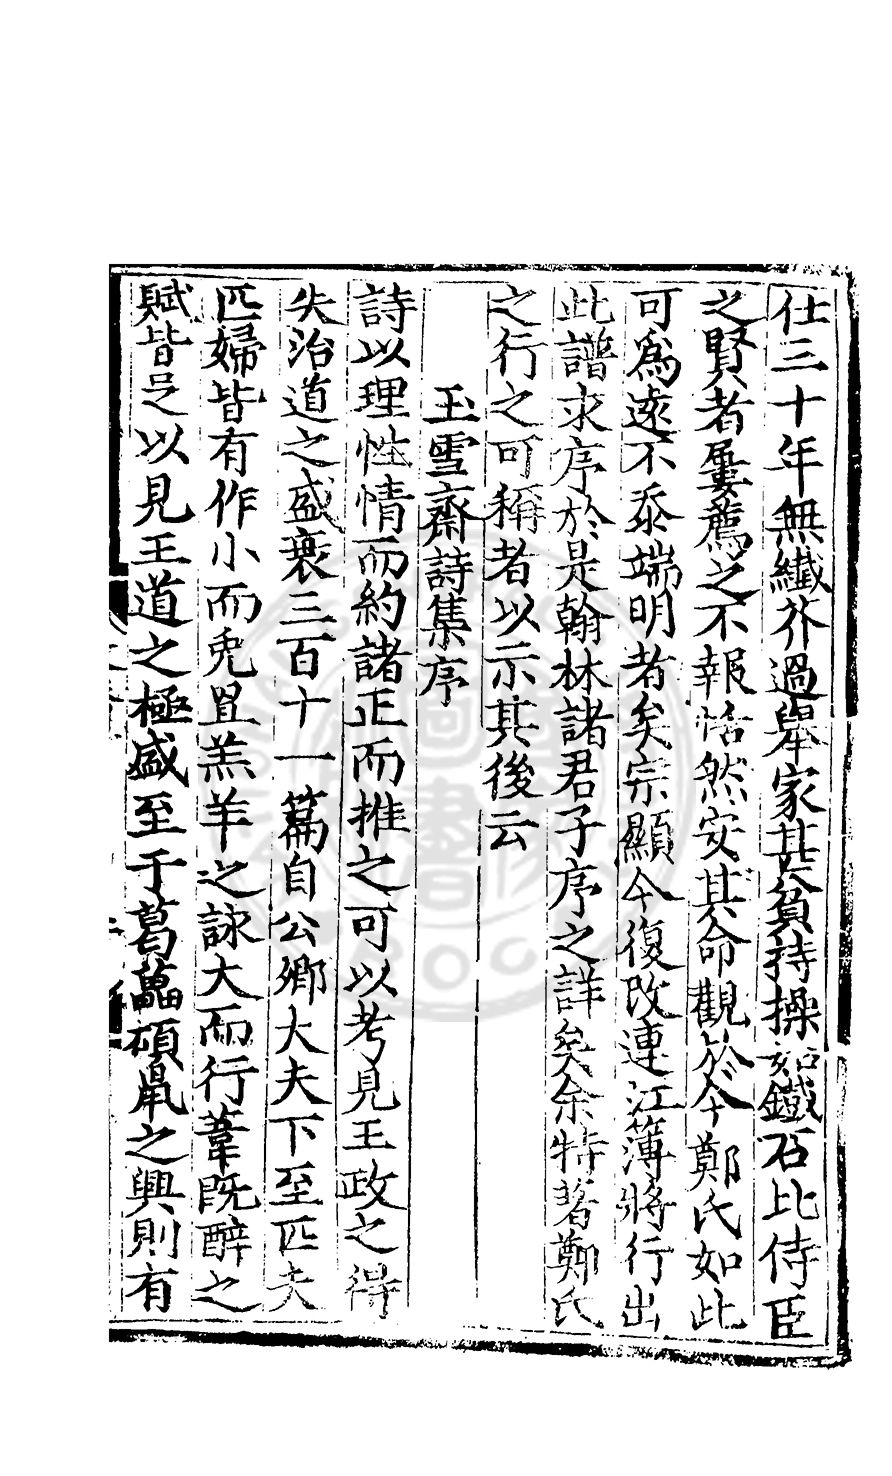 仕三十年無纖芥過舉家甚貧持操如鐵石比侍臣
之賢者屢薦之不報恬然安其命觀於今鄭氏如此
可為遠不忝端明者矣宗顯今復改連江簿將行出
此譜求序於是翰林諸君子序之詳矣余特著鄭氏
之行之可稱者以示其後云
玉雪齋詩集序
詩以理性情而約諸正而推之可以考見王政之得
失治道之盛衰三百十一篇自公卿大夫下至匹夫
匹婦皆有作小而兎罝羔羊之詠大而行葦既醉之
賦皆足以見王道之極盛至于葛藟碩鼠之興則有